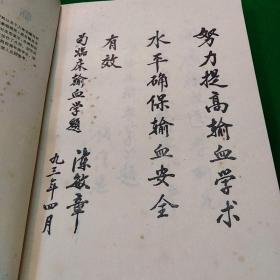 努力提高输血学术
水平确保输血安全
有效
为临床输血学题
陈敏章
九三年四月